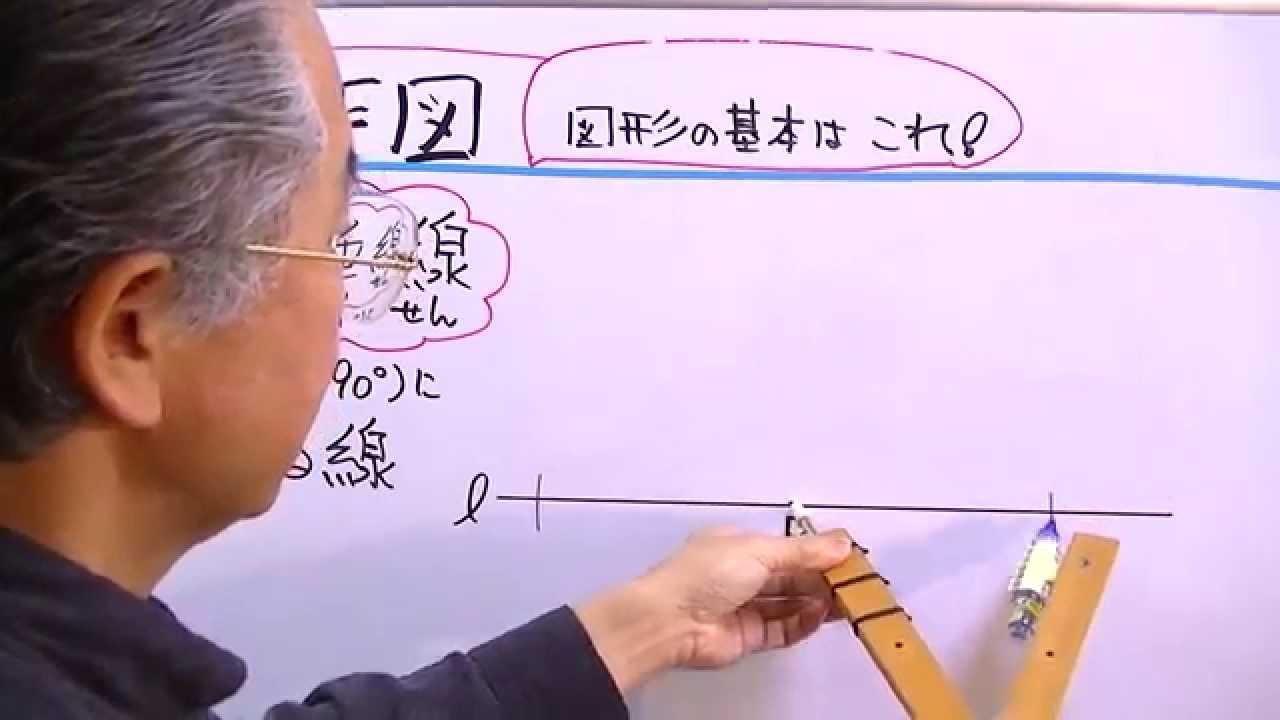 図
図形の基本は これ!
線
せん
90°)に
る線
l